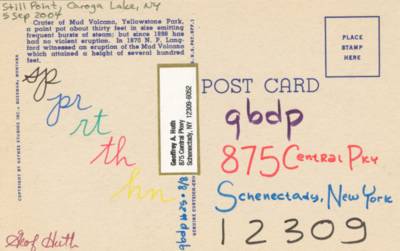 Still Point, Caroga Lake, NY
5 Sep 2004
Crater of Mud Volcano, Yellowstone Park,
a paint pot about thirty feet in size emitting
frequent bursts of steam; but since 1898 has
had no violent eruption. In 1870 N. P. Lang-
ford witnessed an eruption of the Mud Volcano
which attained a height of several hundred
feet.
PLACE
STAMP
HERE
POST CARD
sp
pr
rt
th
hn
Geoffrey A. Huth
875 Central Pkwy
Schenectady, NY 12309-6052
qbdp
875 Central Pky
Schenectady, New York
12309
qbdp #25 • 8/8
Geof Huth